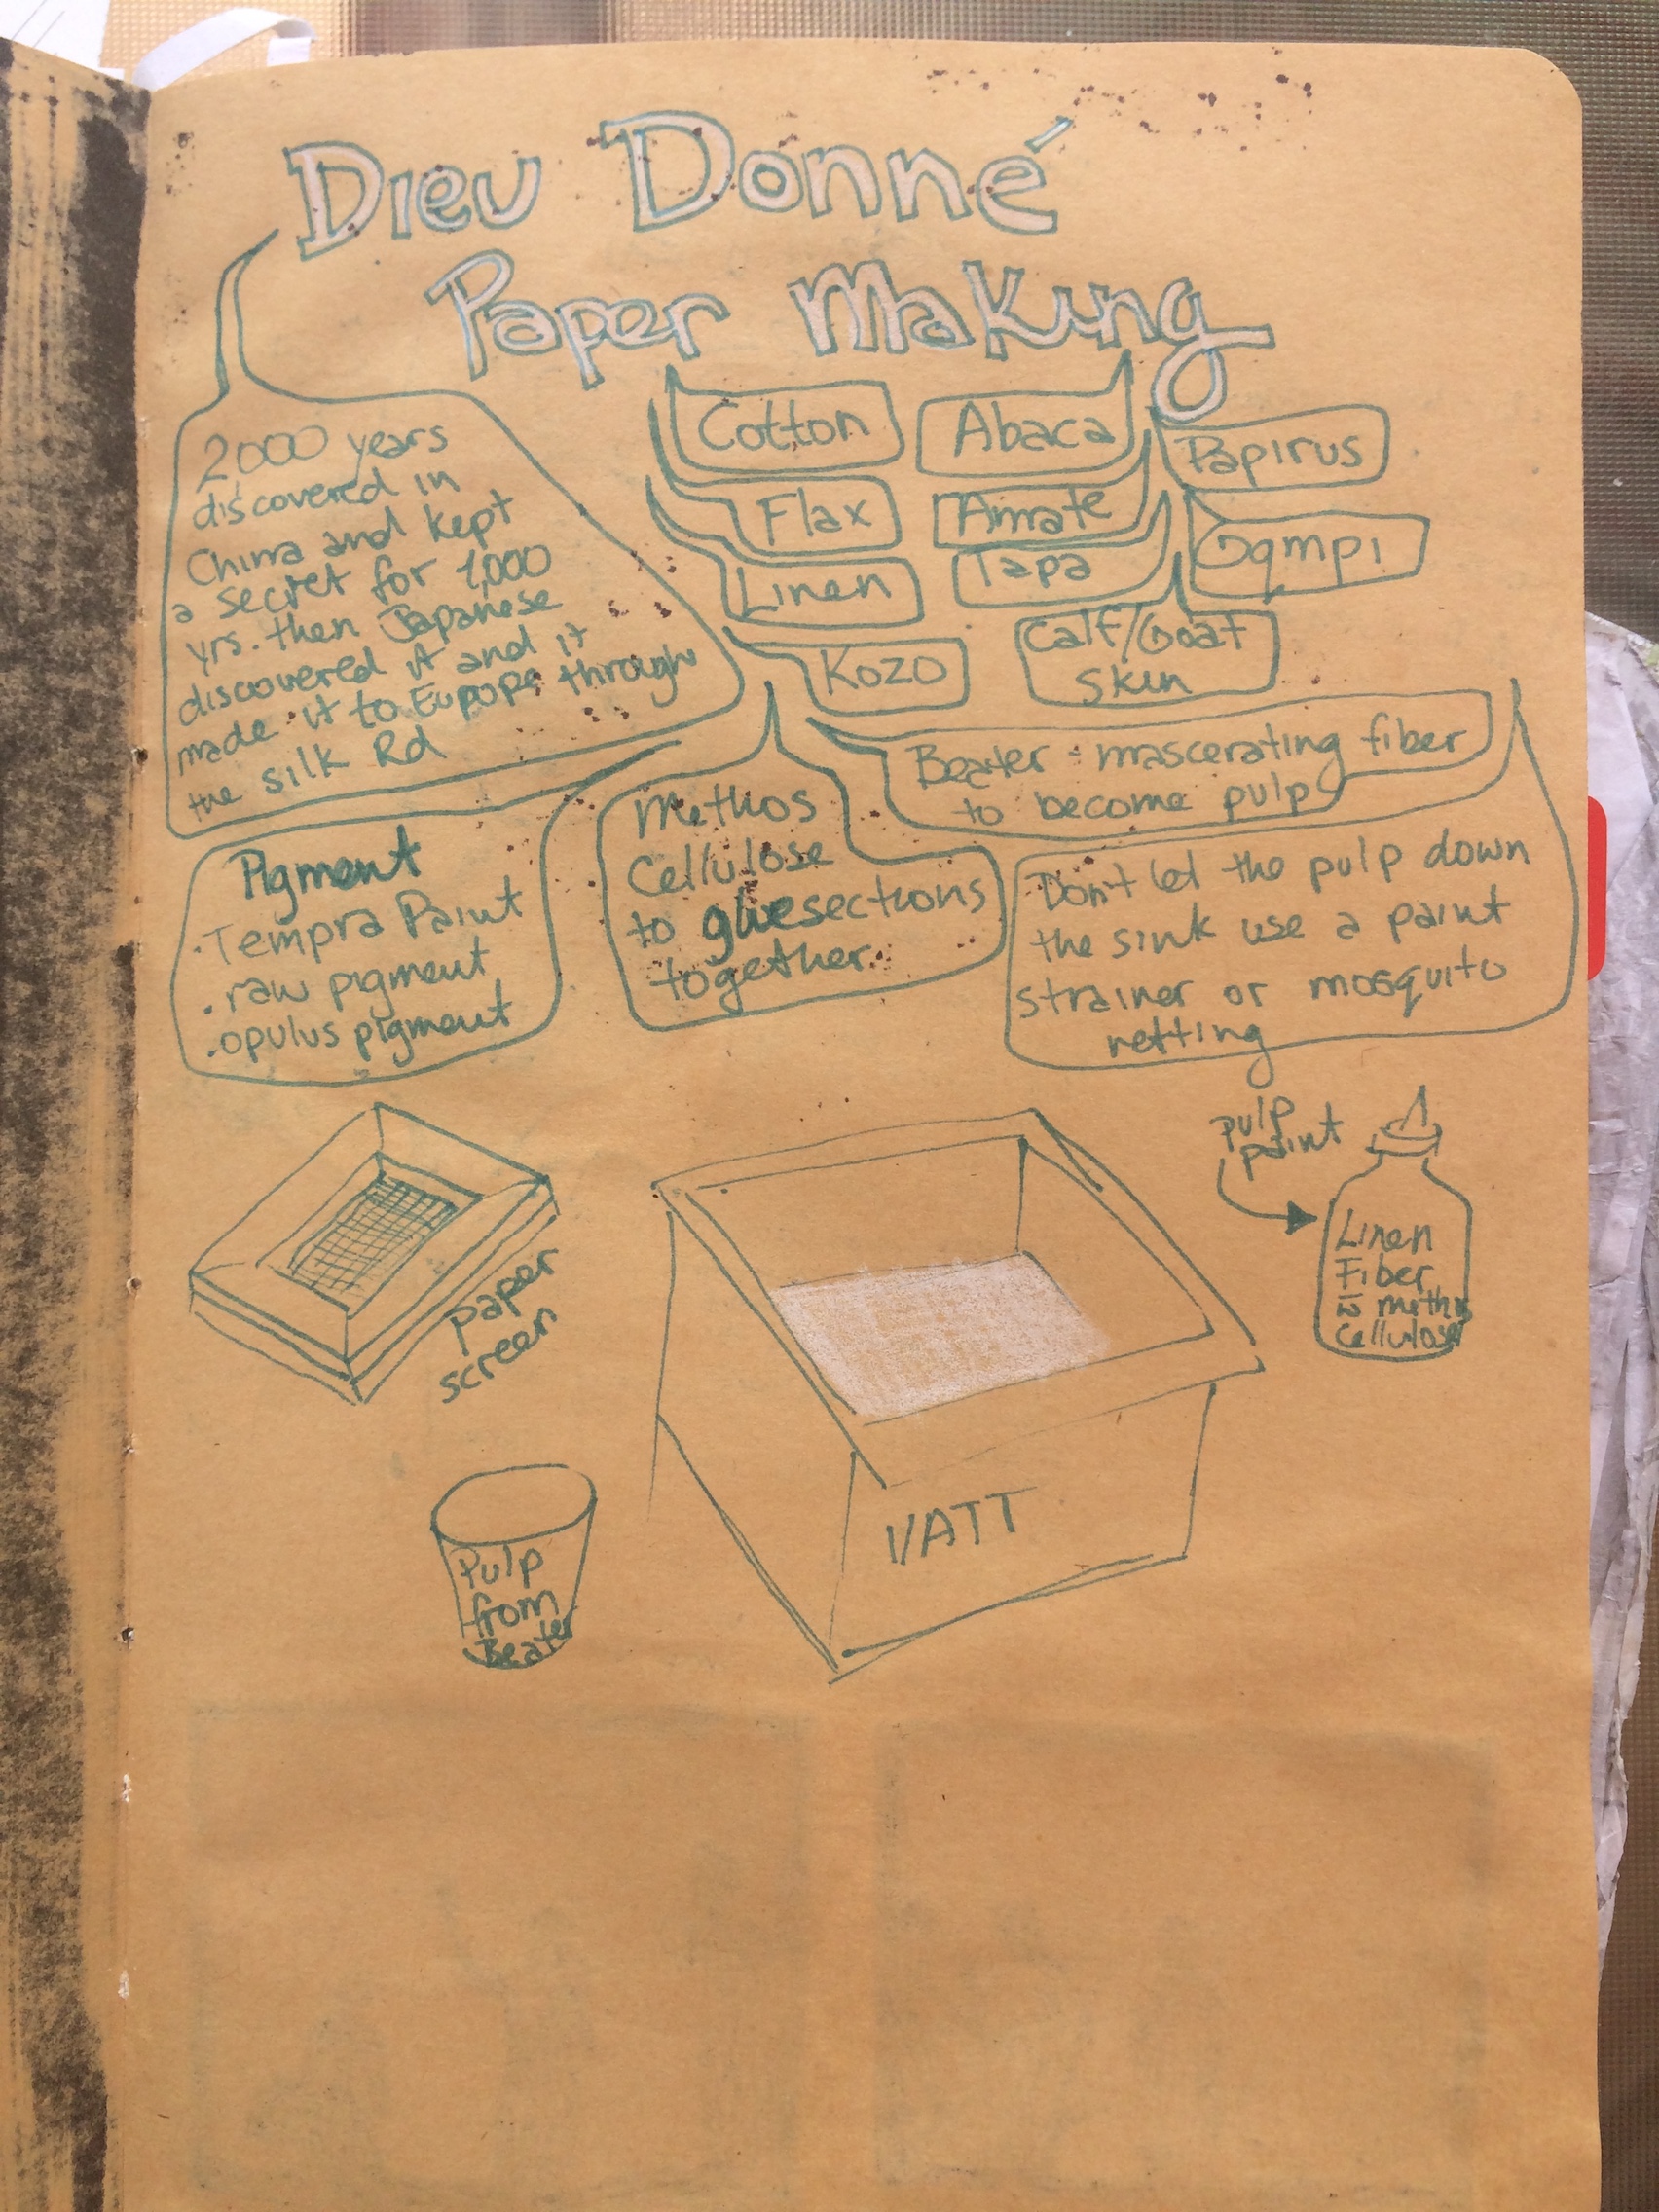 Dieu Donné
Paper Making
2000 years
discovered in
China and kept
a secret for 1,000
yrs. then Japanese
discovered it and it
made it to Europe through
the silk Rd
Cotton
Flax
Linen
Kozo
Abaca
Amate
Tapa
Calf/Goat
Skin
Papirus
Gampi
Beater : mascerating fiber
to become pulp
Pigment
. Tempra Paint
. raw pigment
. opulus pigment
Methos
Cellulose
to glue sections
together.
Don't let the pulp down
the sink use a paint
strainer or mosquito
netting
paper
screen
VATT
pulp
paint
Linen
Fiber
w̄ methos
Cellulose
Pulp
from
Beater